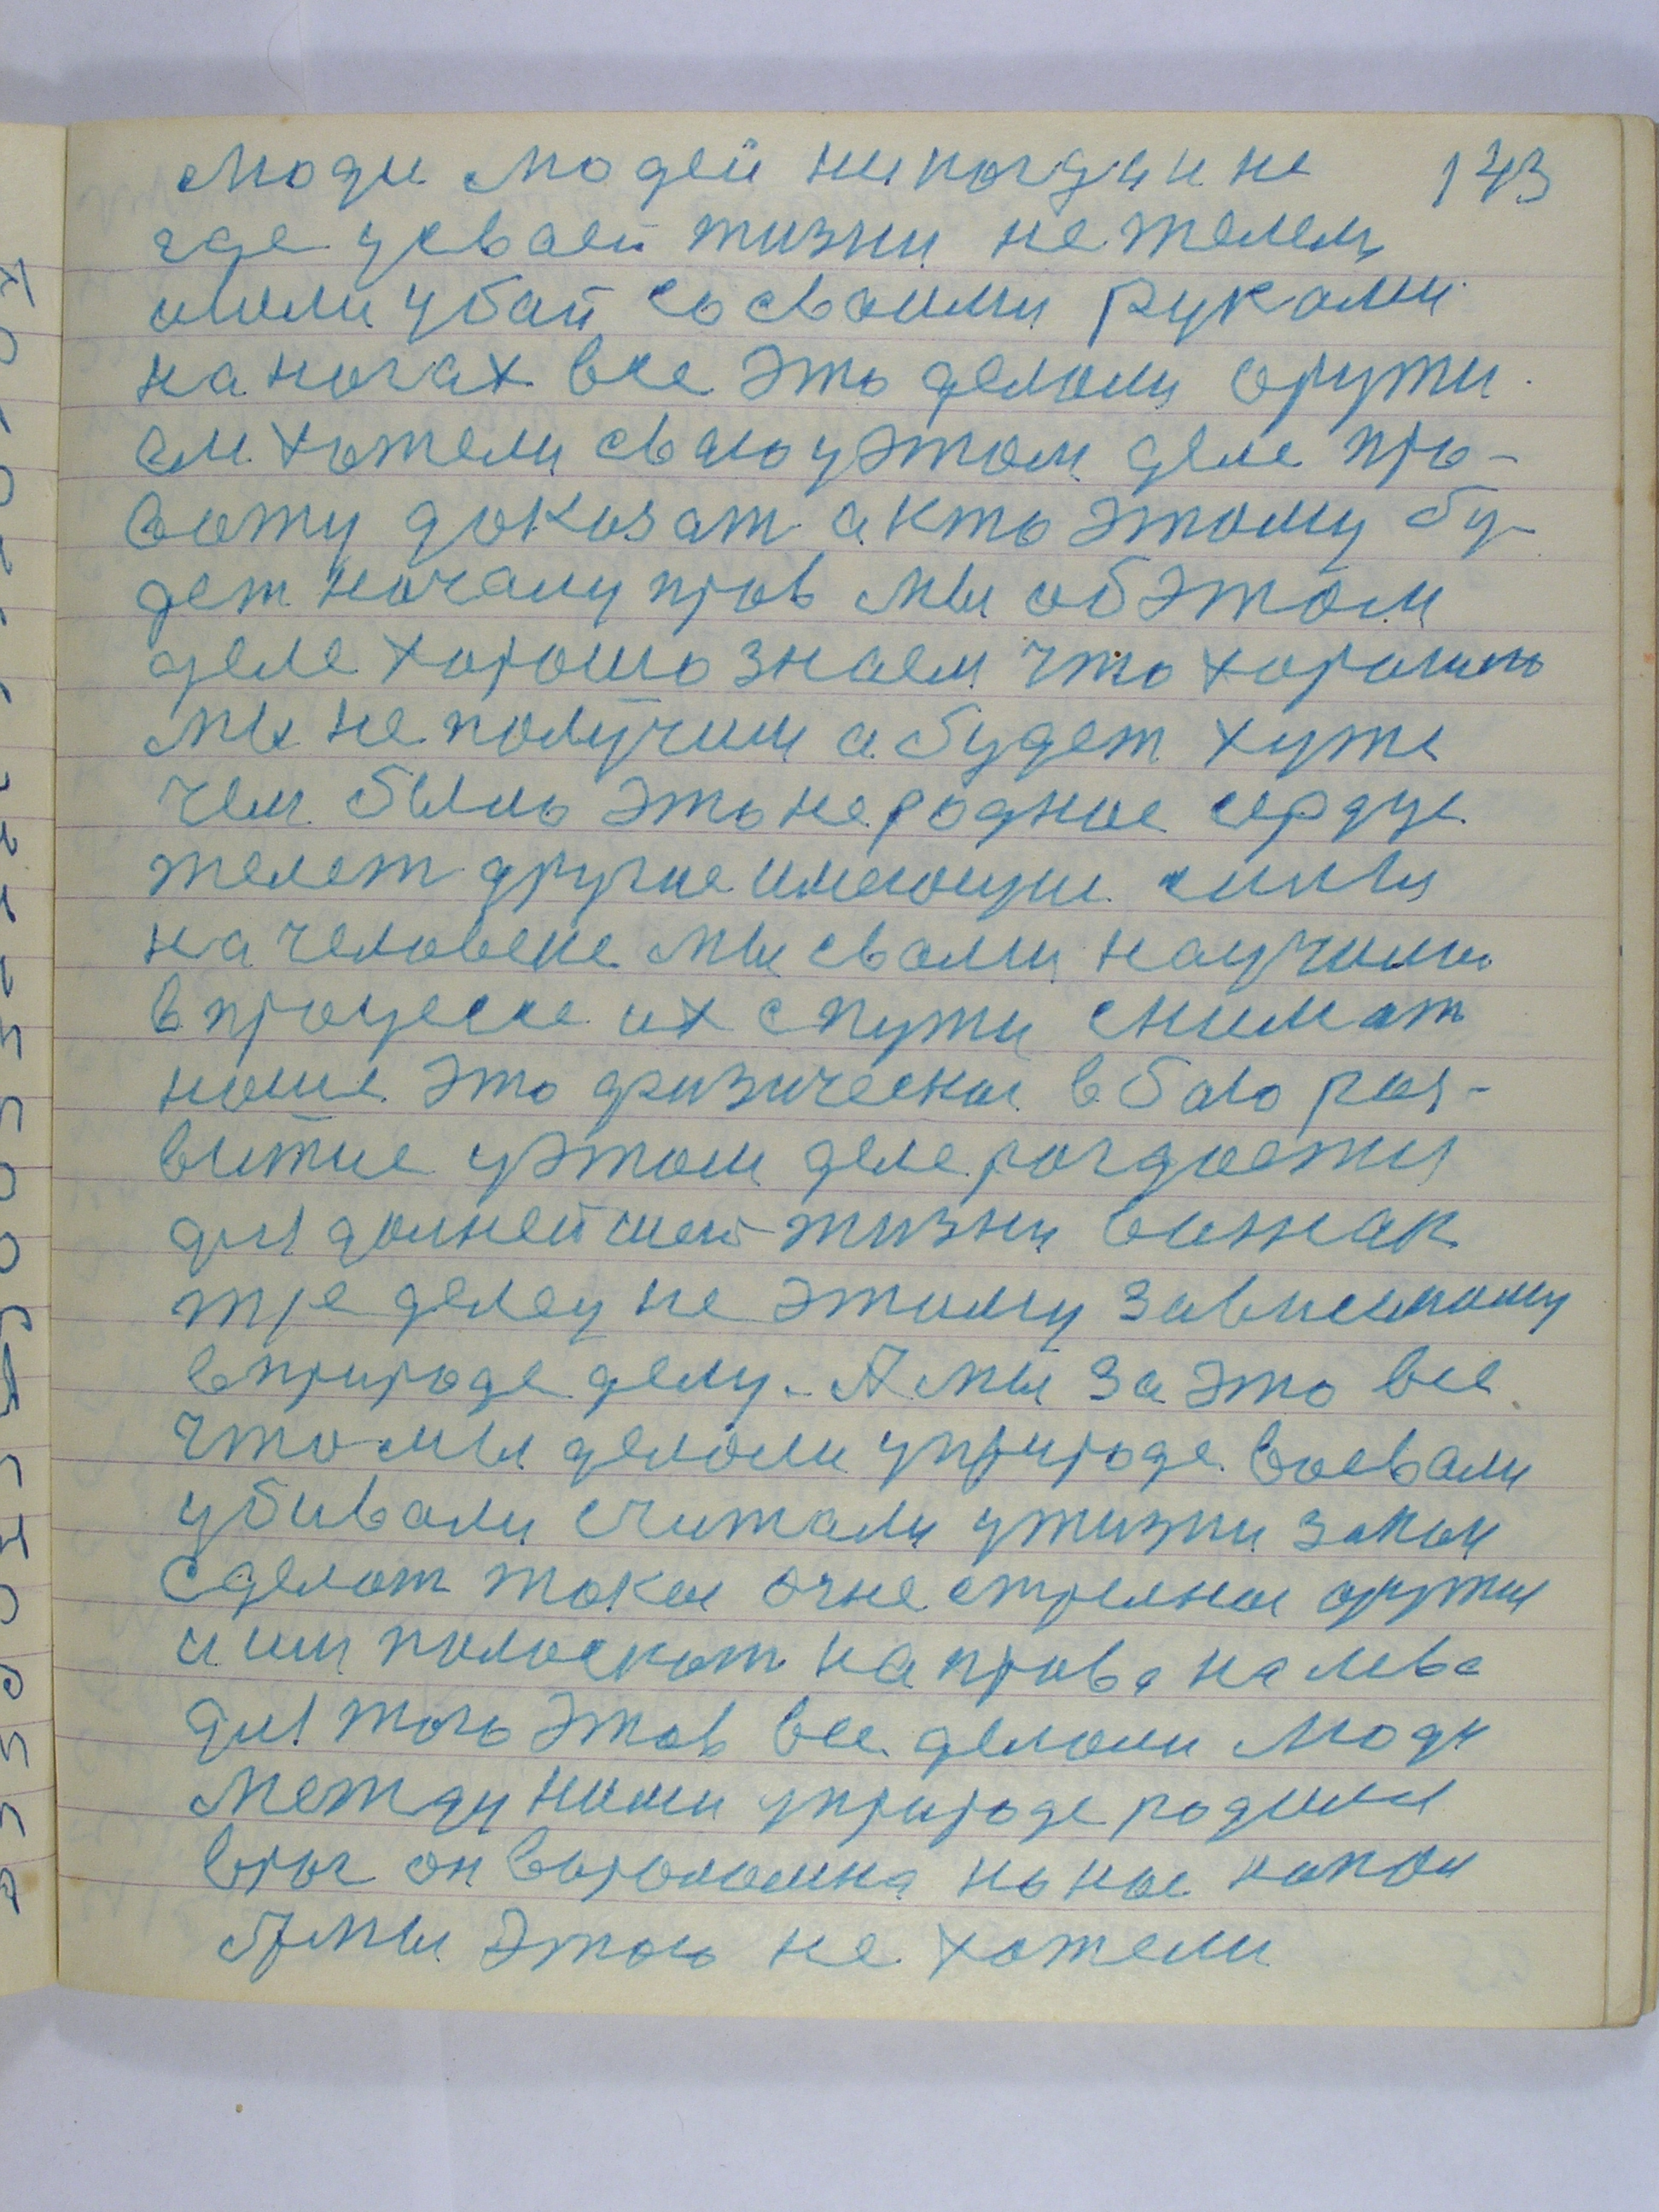 143
люди людей никогда и не
где у своей жизни не жалели
шли у бой со своими руками
на ногах все это делали оружи
ем хотели свою у этом деле пра-
воту доказат а кто этому бу-
дет началу прав мы об этом
деле хорошо знаем что хорошего
мы не получим а будет хуже
чем было это не родное сердце
жалет другие имеющие силы
на человеке мы с вами научились
в процессе их с пути снимат
наше это физическое в бою раз-
витие у этом деле рождается
для далнейшей жизни
тре делец не этому зависимому
в природе делу. А мы за это все
что мы делали у природе воевали
убивали считали у жизни закон
сделат такое огнестрелное оружие
и им полоскат на права на лева
для того этов все делали люди
между ними у природе родился
враг он вороломна на нас напал
А мы этого не хотели